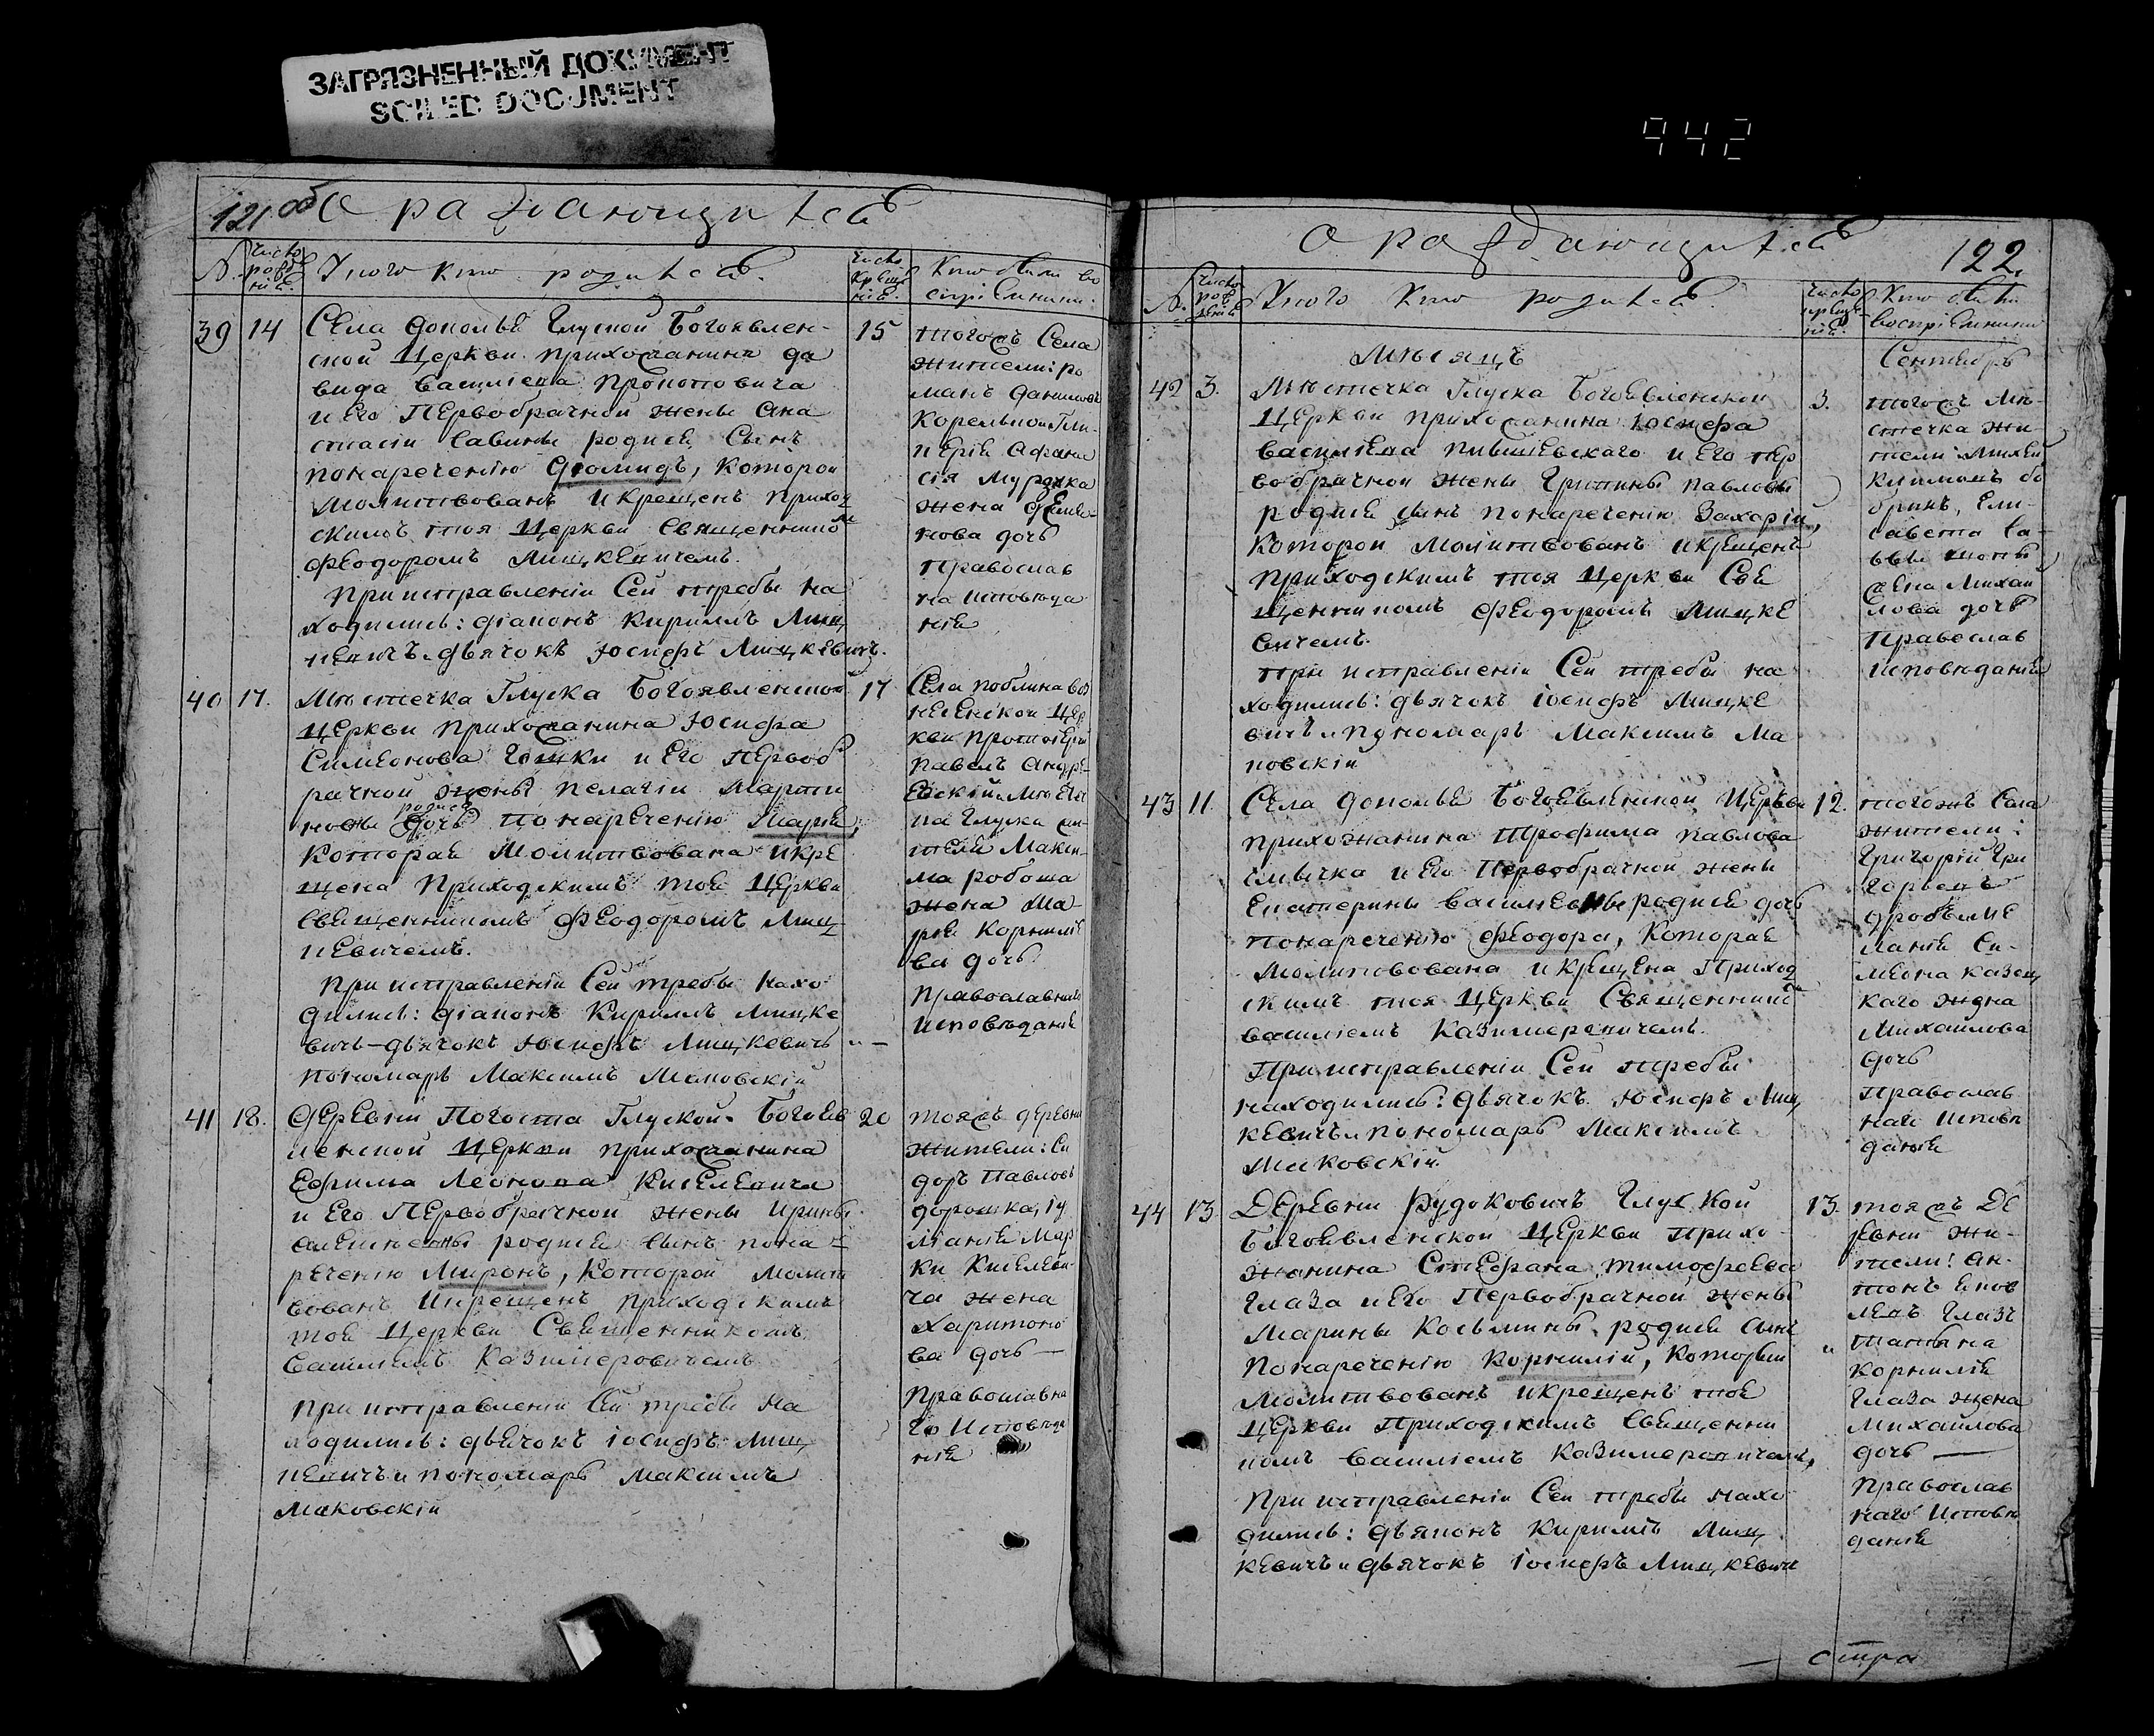 ЗАГРЯЗНЕННЫЙ ДОКУМЕНТ
SOILED DOCUMENT
942
121 об
О раждающихся
№.
Число рождения.
У кого кто родился.
Число крещения.
Кто были воспріемники.
39
14
Села Дополья Глуской Богоявлен-
ской Церкви прихожанина Да
вида Васильева Прокоповича
и Его Первобрачной жены Ана
стасіи Савины родися Сынъ
понареченію Діомидъ, Которой
Молитвованъ и Крещенъ приход
скимъ тоя Церкви Священникомъ
Феодоромъ Мицкевичемъ.
При исправленіи Сей требы на
ходились: діаконъ Кириллъ Миц
кевичъ дьячокъ Іосифъ Мицкевичъ.
15
тогожъ Села
жители: Ро
манъ
жена
нова дочь
Православ
на исповѣда
нія
40
17.
Мѣстечка Глуска Богоявленской
Церкви Прихожанина Іосифа
Симеонова и Его Первоб
рачной жены Пелагіи Марти
новы родися дочь понареченію Марія,
Которая Молитвована и Кре
щена Приходскимъ тоя Церкви
Священникомъ Феодоромъ Миц-
кевичемъ.
При исправленіи Сей требы нахо
дились: діаконъ Кириллъ Мицке
вичъ-дьячокъ Іосифъ Мицкевичъ и
пономарь Максимъ Маковскій
17
Села Поблина Воз
несенской Цер
кви Протоіерей
Павелъ
Мѣстеч
ка Глуска жи-
теля Макси-
ма Робоша
жена Ма-
рія Корниліе
ва дочь
Православнаго
исповѣданія
41
18.
Деревни Погоста Глуской Богояв
ленской Церкви прихожанина
Ефрима Леонова Киселевича
и Его Первобрачной жены Ирины
Алексѣевны родися сынъ пона
реченію Миронъ, Которой Молит
вованъ и крещенъ приходскимъ
тоя Церкви Священникомъ
Василіемъ Казимеровичемъ
При исправленіи Сей требы на
ходились: дьячокъ Іосифъ Миц
кевичъ и пономарь Максимъ
Маковскій
20
тояжъ деревни
жители: Си
доръ Павловъ
Дорошка, Іу
ліанія Мар
ки Киселеви-
ча жена
Харитоно
ва дочь —
Православна
го Исповѣда
нія
О раждающихся
122.
№.
Число рожденія.
У кого кто родился.
Число крещенія.
Кто были воспріемники
Мѣсяцъ
Сентябрь
42
3.
Мѣстечка Глуска Богоявленской
Церкви прихожанина Іосифа
Васильева и Его пер
вобрачной жены Григины Павловы
родися сынъ понареченію Захарій,
Которой Молитвованъ и крещенъ
приходскимъ тоя Церкви Свя
щенникомъ Феодоромъ Мицке
вичемъ.
При исправленіи Сей требы на
ходились: дьячокъ Іосифъ Мицке
вичъ и пономарь Максимъ Ма
ковскій
3.
тогожъ Мѣ-
стечка жи-
тели
Ели-
савета Са-
ввы
жена Михай
лова дочь
Православ
исповѣданія
43
11.
Села Дополья Богоявленской Церкви
прихожанина Трофима Павлова
и Его Первобрачной жены
Екатерины Васильевны родися дочь
понареченію Феодора, Которая
Молитвована и Крещена Приход
скимъ тоя Церкви Священникомъ
Василіемъ Казимеровичемъ.
При исправленіи Сей требы
находились: дьячокъ Іосифъ Миц
кевичъ и пономарь Максимъ
Маковскій.
12.
тогожъ Села
жители:
Григорій Гри
горьевъ
Си-
меона Казец
каго жена
Михайлова
дочь
Православ
наго исповѣ
данія
44
13
Деревни Рудоковичъ Глуской
Богоявленской Церкви Прихо
жанина Стефана Тимофеева
Глаза и Его Первобрачной жены
Марины Косьмины, родися сынъ
понареченію Корнилій, Который
Молитвованъ и крещенъ тоя
Церкви Приходскимъ Священни
комъ Василіемъ Казимеровичемъ,
При исправленіи Сей требы нахо
дились: дьяконъ Кириллъ Миц
кевичъ и дьячокъ Іосифъ Мицкевичъ
13.
тояжъ Де
ревни жи-
тели: Ан-
тонъ
Глазъ
и Татьяна
Корнилія
Глаза жена
Михайлова
дочь —
Православ
наго исповѣ
данія
стра